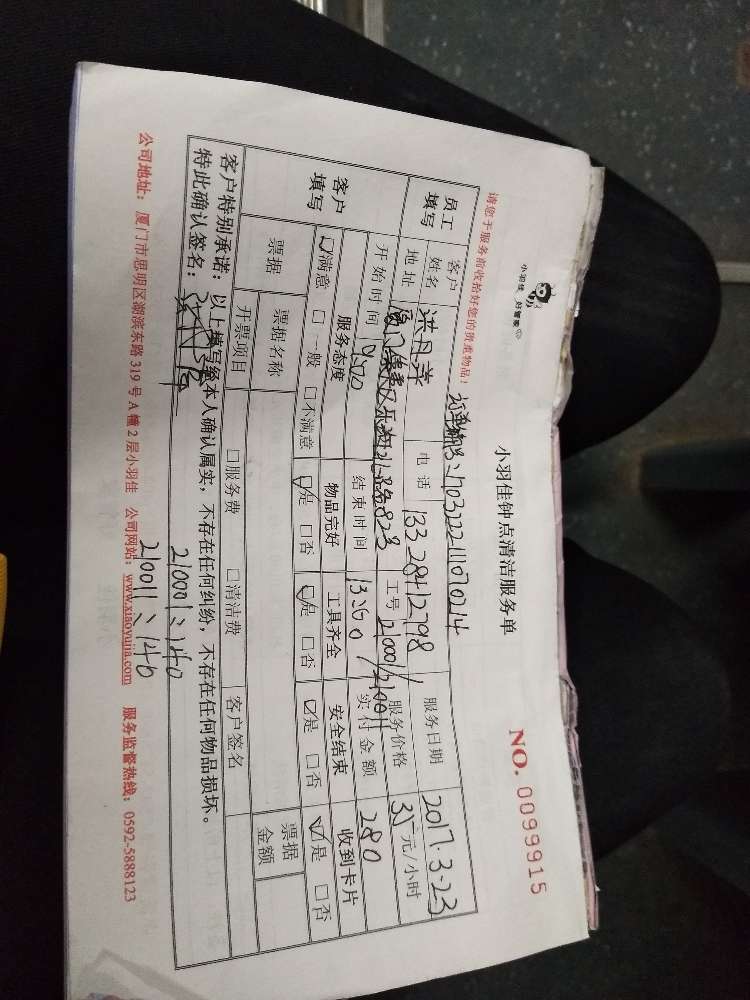 小羽佳 好管家
小羽佳钟点清洁服务单
NO. 0099915
请您于服务前收拾好您的贵重物品!
订单编号:170322211070214
员工填写 客户姓名 洪月萍 电话 13328412798 服务日期 2017.3.23
地址 厦门 823 工号 21000/21001 服务价格 35元/小时
开始时间 9:00 结束时间 13:00 实付金额 280
客户填写 服务态度 物品完好 工具齐全 安全结束 收到卡片
☑满意 □一般 □不满意 ☑是 □否 ☑是 □否 ☑是 □否 ☑是 □否
票据 票据名称 票据金额
开票项目 □服务费 □清洁费 客户签名
客户特别承诺:以上填写经本人确认属实,不存在任何纠纷,不存在任何物品损坏。
特此确认签名:
21000:140
21001:140
公司地址:厦门市思明区湖滨东路319号A幢2层小羽佳 公司网站:www.xiaoyujia.com 服务监督热线:0592-5888123